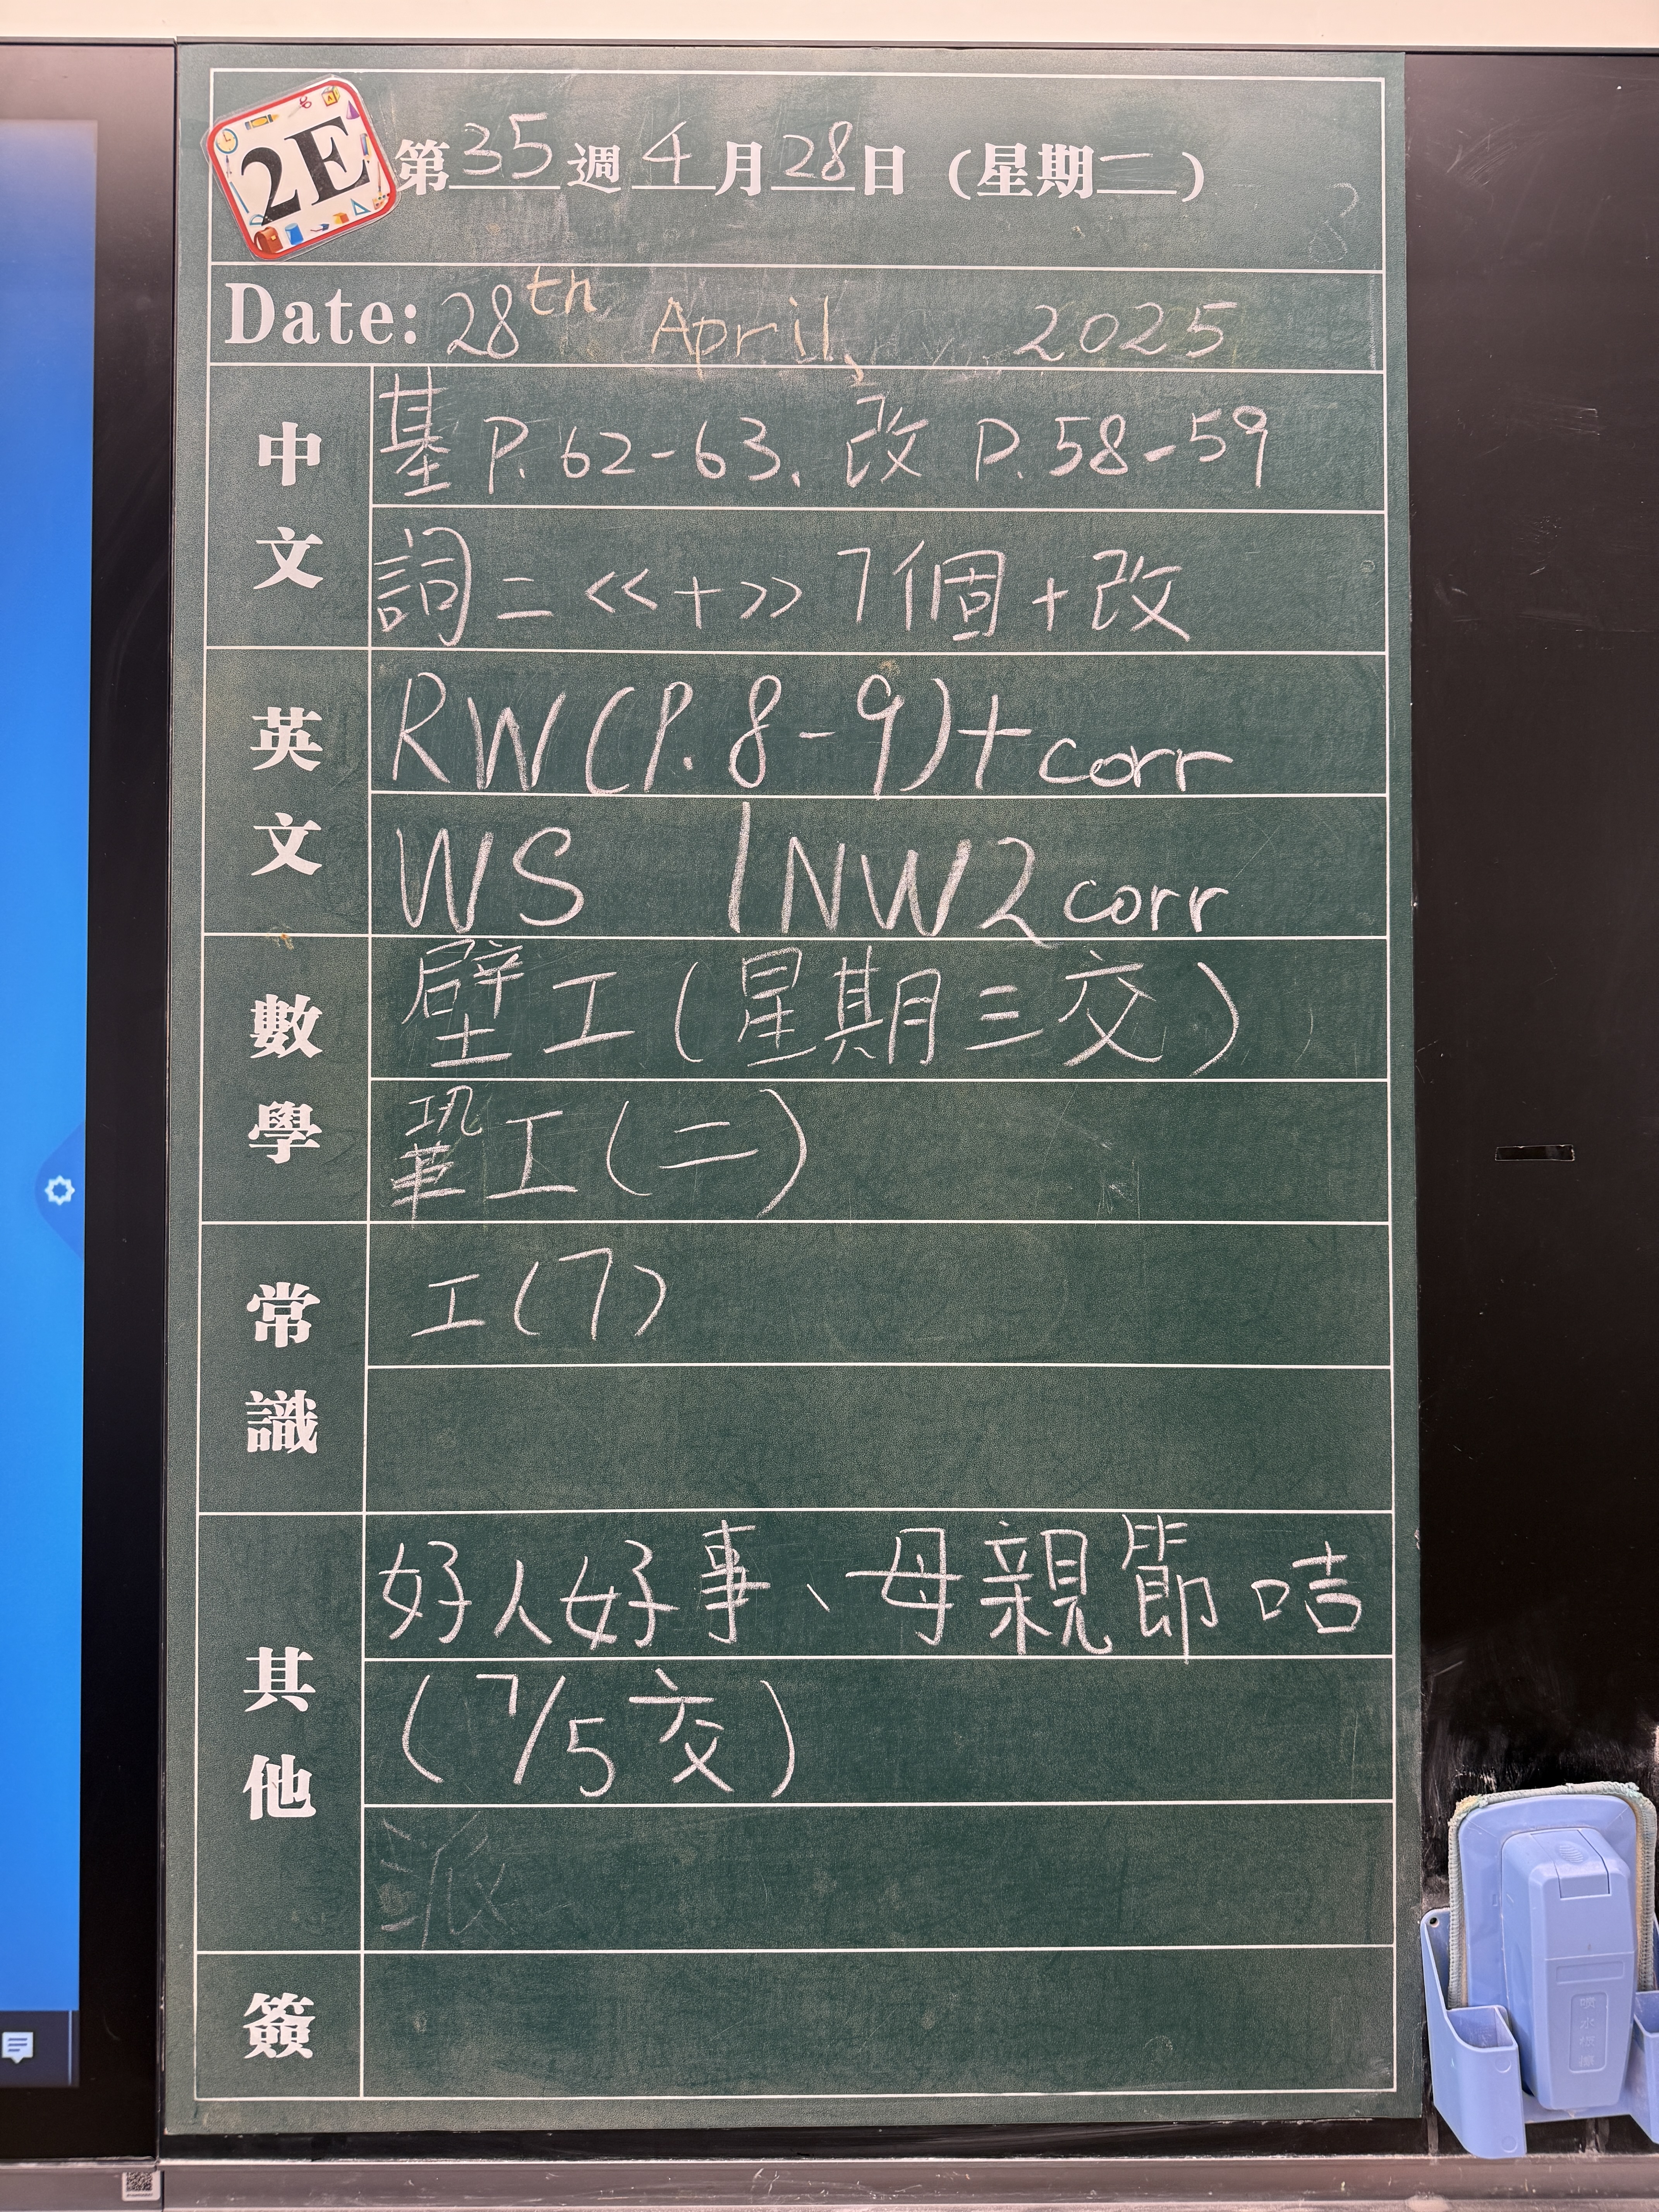 2E
第35週4月28日(星期二)
Date: 28th April, 2025
中文
基 P.62-63、改 P.58-59
詞二 <<十>> 7個+改
英文
RW(P.8-9)+corr
WS 1NW2corr
數學
壁工(星期三交)
鞏工(二)
常識
工(7)
其他
好人好事、母親節咭
(7/5交)
派
簽